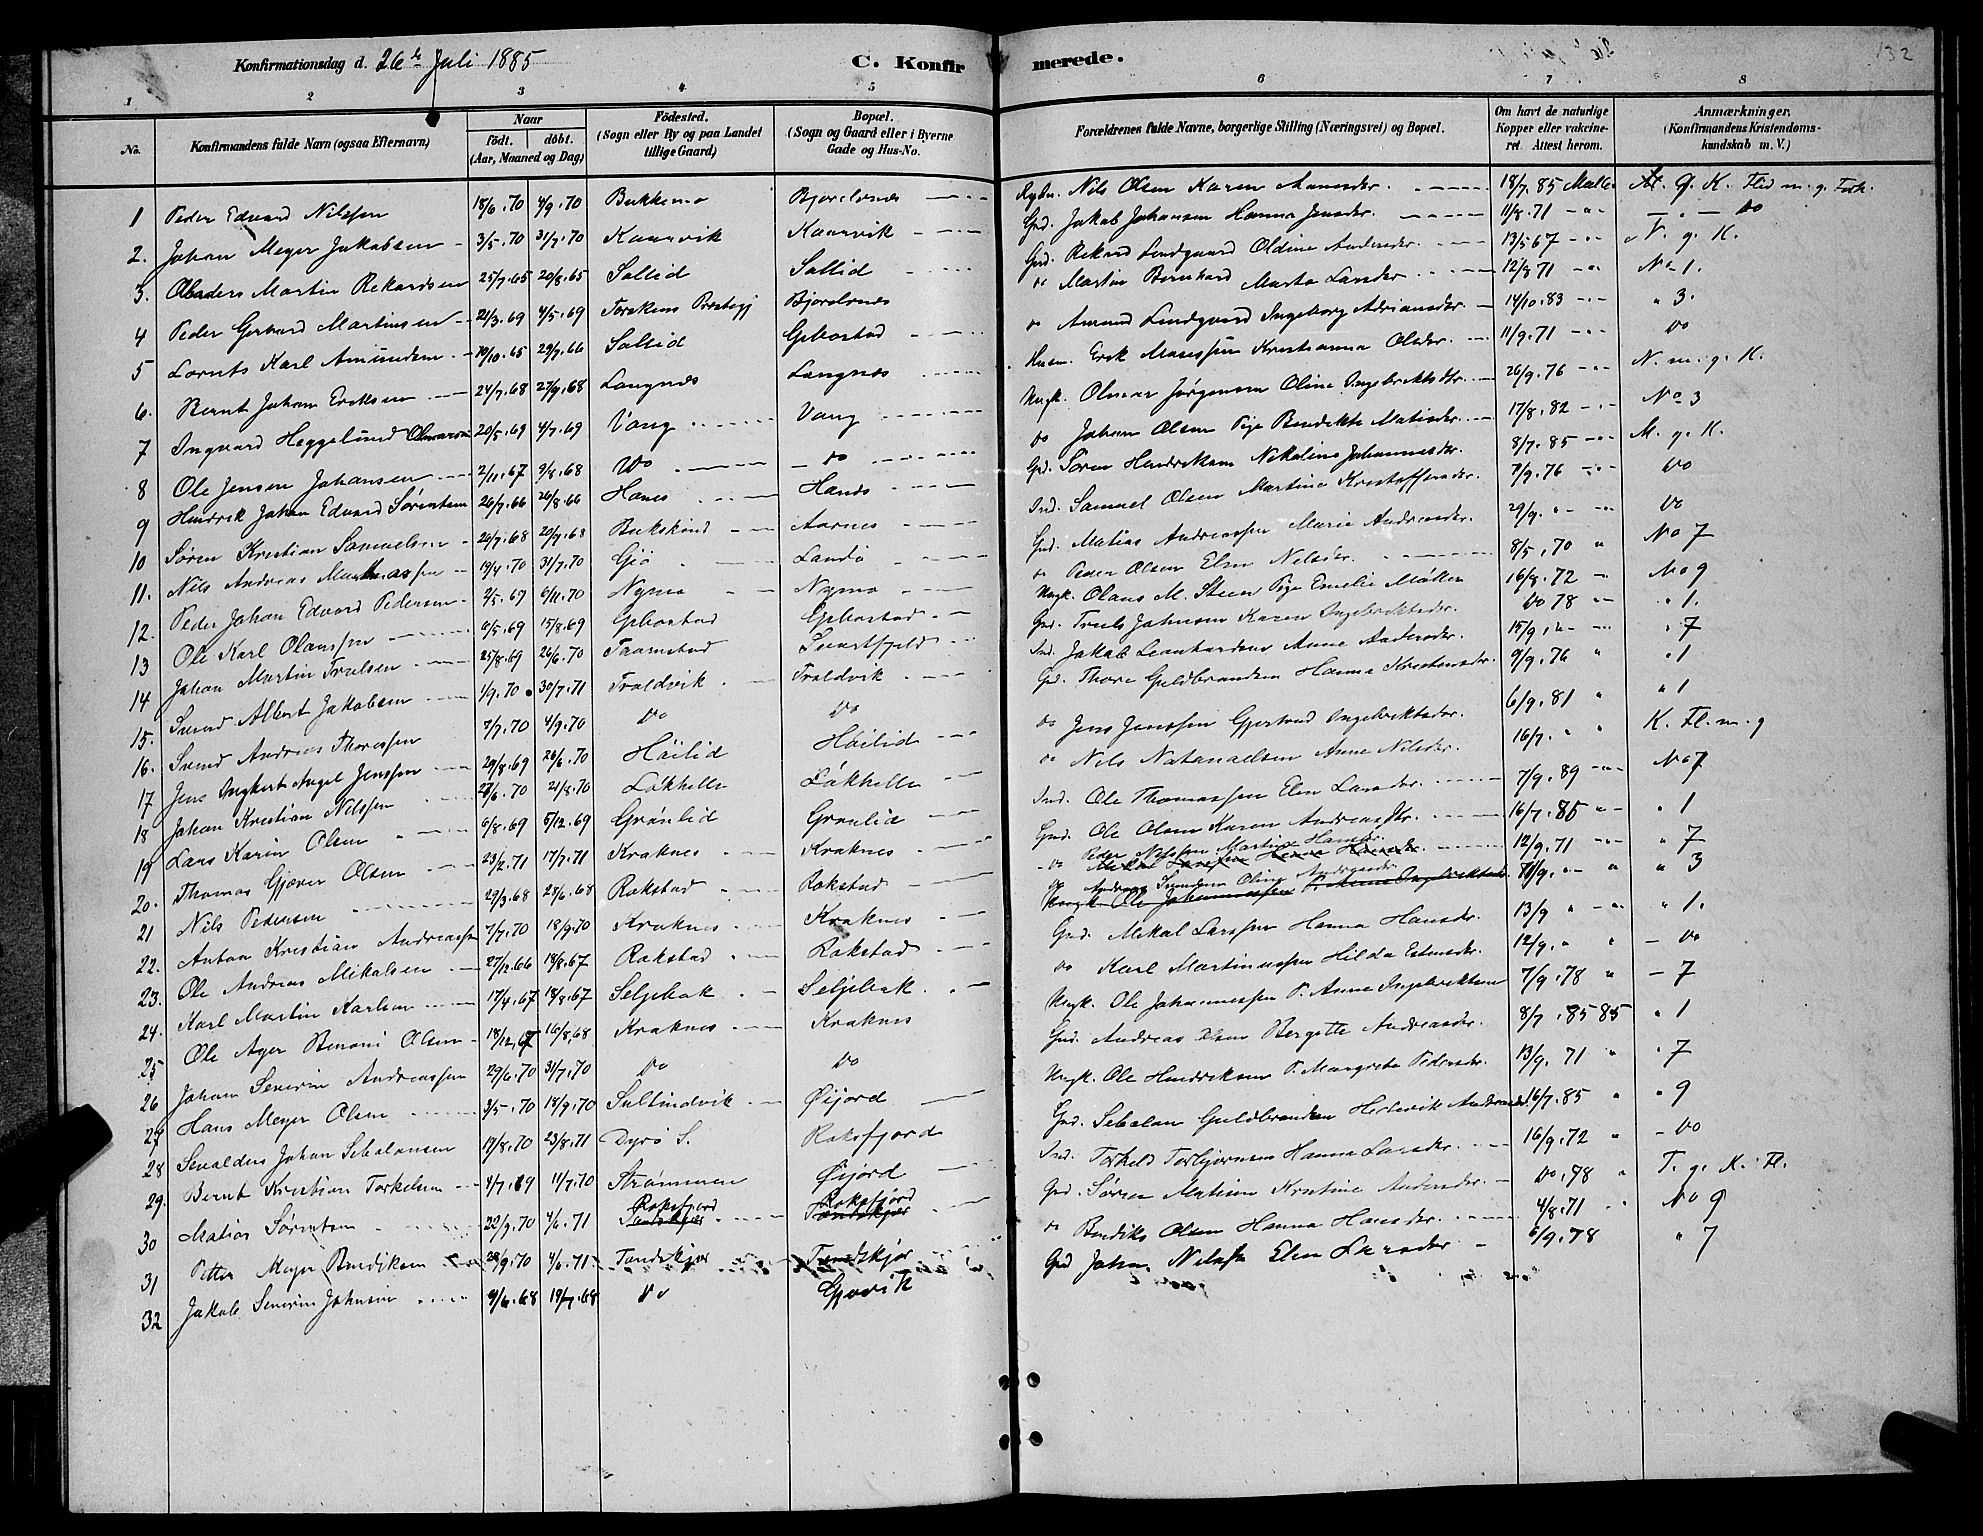 Konfirmationsdag d. 26de Juli 1885
C. Konfirmerede.
132
1 2 3 4 5 6 7 8
No.
Konfirmandens fulde Navn (ogsaa Efternavn)
Naar
födt. döbt.
(Aar, Maaned og Dag)
Födested.
(Sogn eller By og paa Landet tillige Gaard)
Bopæl.
(Sogn og Gaard eller i Byerne Gade og Hus-No.
Forældrenes fulde Navne, borgerlige Stilling (Næringsvei) og Bopæl.
Om havt de naturlige Kopper eller vakcineret. Attest herom.
Anmærkninger,
(Konfirmandens Kristendomskundskab m. V.)
1 Peder Edvard Nilssen 18/6.70 4/9.70 Nils Olsen Karen 18/7.85
2. Johan Meyer Jakobsen 3/5.70 31/7.70 Kaarvik Kaarvik Grd. Jakob Johansen Hanna Jensdr. 11/8.71 do
3. Martin Rekardsen 25/7.65 20/8.65 Sollid Sollid Grd. Rekard Lindgaard Oldine Andersdr. 13/5 67 N. g. K.
4 Peder Gerhard Martinsen 21/3.69 4/5.69 Torskens Prestegj Bjorelvnes do Martin Bernhard Marta Larsdr. 12/8 71 No 1.
5 Lornts Karl Amundsen 10/10.65 29/7.66 Sollid Gebostad do Amund Lindgaard Ingeborg Adriansdr. 14/10.83 " 3.
6. Bernt Johan Eriksen 24/7.68 27/9.68 Langnes Langnes Husm. Erik Kristianna Olsdr. 11/9.71 do
7 Ingvard Heggelund Olmarsen 20/5.69 4/7.69 Vang Vang Ungk. Olmar Jørgensen Oline Ingebriktsdtr. 26/9.76 N. m. g. K.
8 Ole Jensen Johansen 2/11.67 do do do Johan Olsen Pige Bendikte Matisdr. 17/8.82 No 3
9 Hendrik Johan Edvard Sørentsen 26/7.66 26/8.66 Grd. Søren Hendriksen Nikoline Johannesdr. 8/7.85 M. g. K.
10 Søren Kristian Samuelsen 26/7.68 20/9.68 Aarnes Ind. Samuel Olsen Martine Kristoffersdr. 7/9.76 do
11. Nils Andreas Mathiassen 19/4.70 31/7.70 Landø Grd. Matias Andreassen Marie Andreasdr. 29/9. do
12. Peder Johan Edvard Pedersen 2/5.67 6/11.70 Nymo Nymo do Peder Olsen Elen Nilsdr. 8/5.70 No 7
13 Ole Karl Olaussen 6/5.69 15/8.69 Gebostad Gebostad Ungk. Olaus M. Steen Pige Emelie 16/8.72 No 9
14 Johan Martin Trulsen 25/8.69 26/6.70 Taarnstad Svartfjeld Grd. Truls Johnsen Karen Ingebriktsdr. do 78 " 1.
15. Svend Albert Jakobsen 1/9.70 30/7.71 Troldvik Troldvik Ind. Jakob Leonhardsen Anne Andersdr. 15/9. " 7
16. Svend Andreas Thoressen 7/7.70 4/9.70 do do Gd. Thore Guldbrandsen Hanna Kristensdr. 9/9.76 " 1
17 Jens Angel Jenssen 29/8.69 26/6.70 Høilid Høilid do Jens Jenssen Gjertrud Ingebriktsdr. 6/9.81 " 1
18 Johan Kristian Nilssen 21/8.70 Løkhelle Løkhelle do Nils Natanaelsen Anne Nilsdr. 16/7. K. Fl. m. g
19 Lars Karin Olsen 6/8.69 5/12.69 Grønlid Grønlid Ind. Ole Thomassen Elen Larsdr. 7/9.89 No 7
20. Thomas Gjæver Olsen 23/2.71 17/7.71 Kraknes Kraknes Grd. Ole Olsen Karen Andreasdtr. 16/7.85 " 1
21 Nils Pedersen 29/3.68 28/6.68 Rokstad Rokstad do Peder Nilssen Martine Hansdr. 12/9.71 " 7
22. Anton Kristian Andreassen 7/7.70 18/9.70 Kraknes Kraknes do Andreas Oline " 3
23. Ole Andreas Mikalsen 27/12.66 18/8.67 Rokstad Rokstad Grd. Mikal Larssen Hanna Hansdr. 13/9 " 1.
24. Karl Martin Karlsen 17/4.67 18/8.67 Seljebak Seljebak do Karl Martinussen Hilda Estensdr. 12/9. - do
25 Ole Ager Benoni Olsen 18/12.67 16/8.68 Kraknes Kraknes Ungk. Ole Johannessen P. Anne Ingebriktsen 7/9.78 - 7
26 Johan Severin Andreassen 29/6.70 31/7.70 do do Grd. Andreas Olsen Bergitte Andreasdr. 8/7.85 85 " 1
27 Hans Meyer Olsen 3/5.70 18/9.70 Sultindvik Øijord Ungk. Ole Hendriksen P. Margrete Pedersdr. 13/9.71 " 7
28 Johan Sebulonsen 19/8.70 23/8.71 Dyrø S. Roksfjord Grd. Sebulon Guldbrandsen 16/7.85 " 9
29. Bernt Kristian Torkelsen 4/7.69 17/7.70 Strømmen Øijord Ind. Torkeld Torbjørnsen Hanna Larsdr. 16/9.72 - do
30 Matias Sørentsen 22/9.70 4/6.71 Roksfjord Roksfjord Grd. Søren Matisen Kristine Andersdr. do.78 T. g. K. Fl.
31 Petter Meyer Bendiksen 4/6.71 Tandskjær Tandskjær do Bendiks Olsen Hanna Hansdr. 4/8.71 No 9
32 Jakob Severin Johnsen 9/6.68 19/7.68 do Gjøvik Grd Johan Nilssen Elen Larsdr 6/9.78 " 7